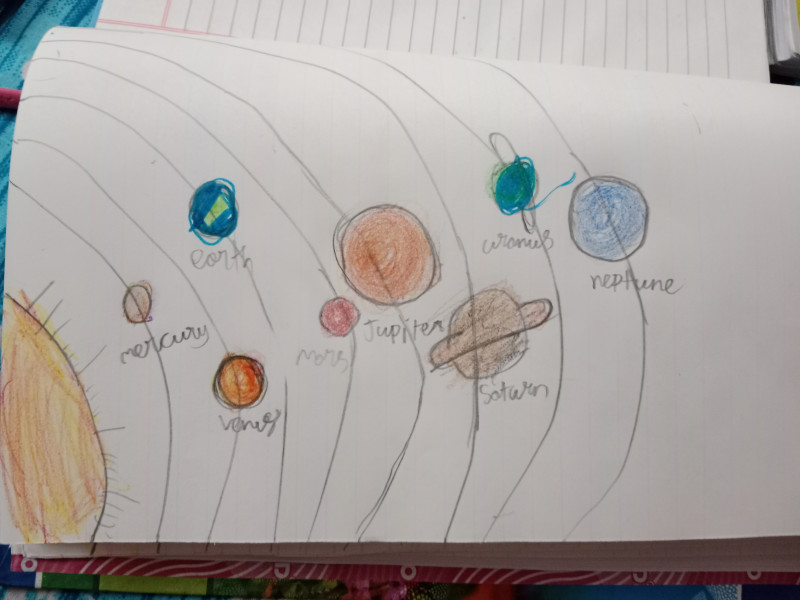 mercury
venus
earth
mars
Jupiter
Saturn
uranus
neptune